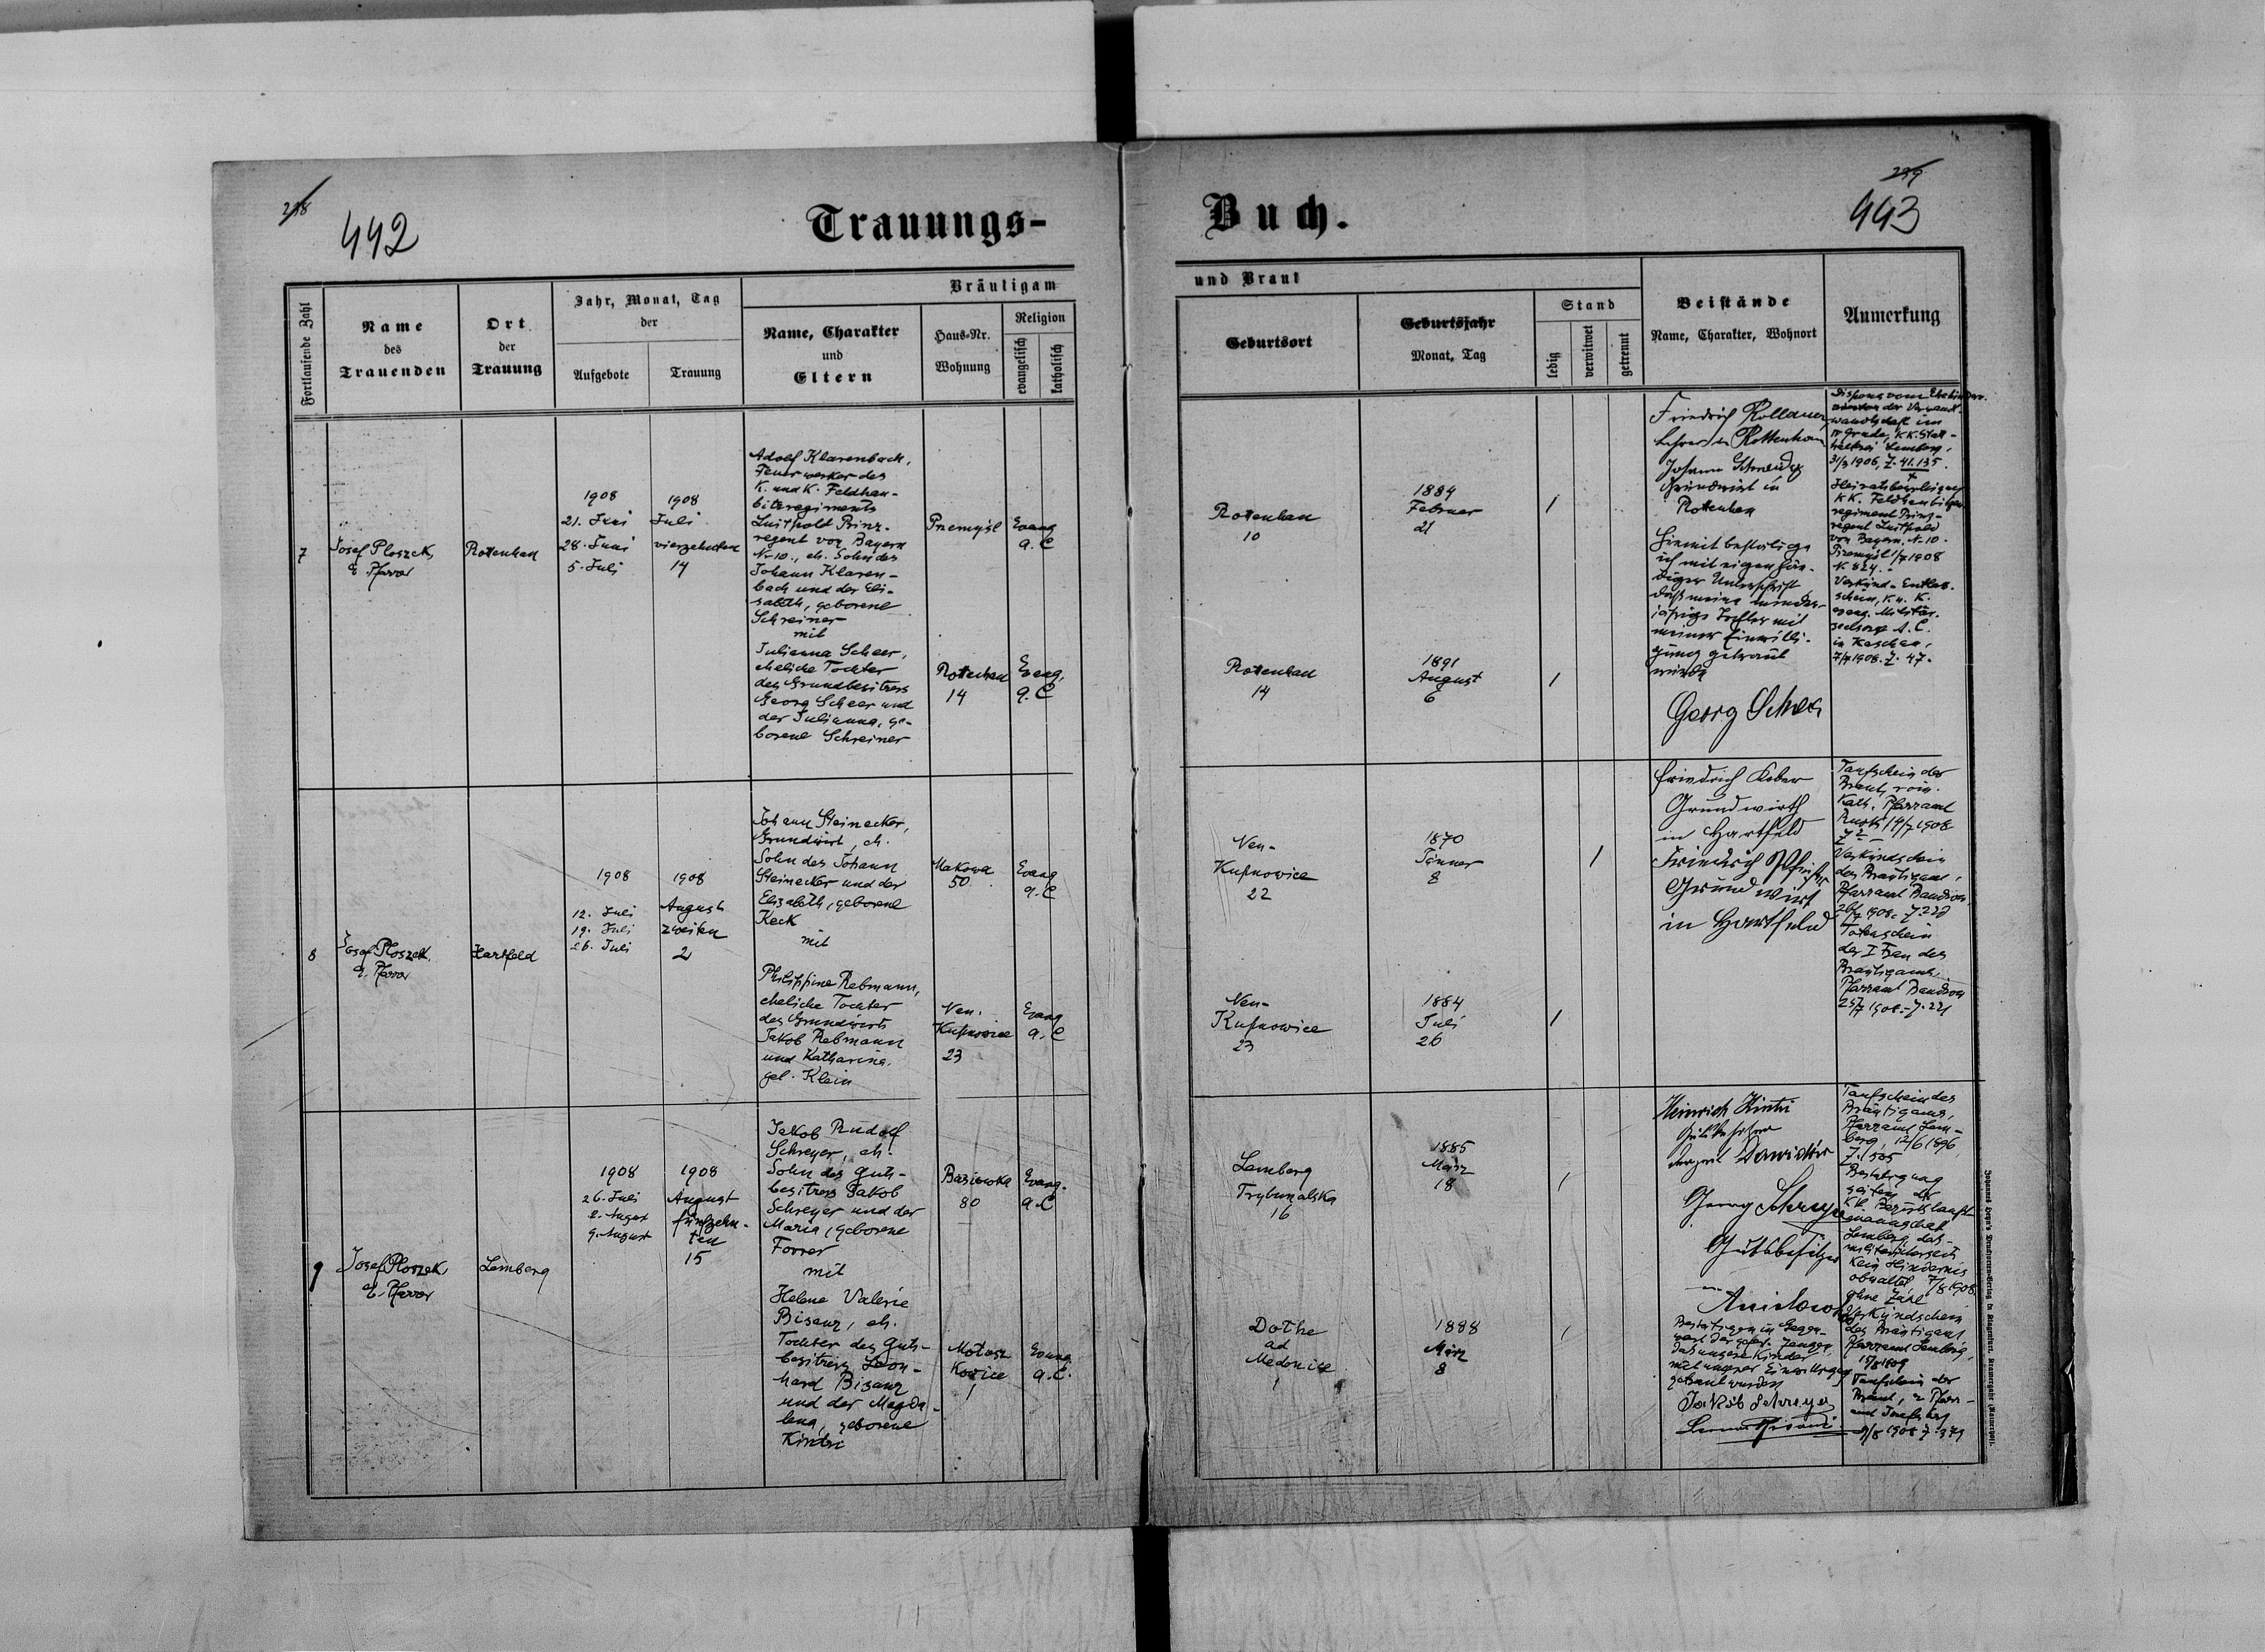 218
442
Trauungs-
Buch.
219
443
Fortlaufende Zahl
Name
des
Trauenden
Ort
der
Trauung
Jahr, Monat, Tag
der
Aufgebote
Trauung
Bräutigam
Name, Charakter
und
Eltern
Haus-Nr.
Wohnung
Religion
evangelisch
katholisch
und Braut
Geburtsort
Geburtsjahr
Monat, Tag
Stand
ledig
verwitwet
getrennt
Beistände
Name, Charakter, Wohnort
Anmerkung
7
Josef Ploszek,
e. Pfarrer
Rottenhan
1908
21. Juni
28. Juni
5. Juli
1908
Juli
vierzehnten
14
Adolf Klarenbach,
Feuerwerker des
K. und K. Feldhau-
bitzregiments
Luitpold Prinz-
regent von Bayern
Nr 10., eh. Sohn des
Johann Klaren-
bach und der Eli-
sabeth, geborene
Schreiner
mit
Julianna Scheer,
eheliche Tochter
des Grundbesitzers
Georg Scheer und
der Julianna, ge-
borene Schreiner
Przemyśl
Evang
a. C
Rottenhan
14
Evang.
a. C
Rottenhan
10
1884
Februar
21
/
Rottenhan
14
1891
August
6
/
Friedrich Rollauer
Lehrer in Rottenhan
Johann Schneidz
Grundwirt in
Rottenhan
Hiemit bestätige
ich mit eigenhän-
diger Unterschrift
daß meine minder-
jährige Tochter mit
meiner Einwilli-
gung getraut
wurde
Georg Scheer
Dispens vom Ehehinder-
der Verwandt-
wandschaft im
IV Grade, K.K. Statt-
halterei Lemberg,
31/3 1908, Z. 41.135.
Heiratsbewilligung
K K. Feldhaubitzen
regiment Prinz-
regent Luitpold
von Bayern. N. 10.
Przemyśl 1/7 1908
N. 824.
Verkünd-Entlas-
schein, K. u. K.
evang. Militär-
seelsorge A. C.
in Kaschau,
7/7 1908. Z. 47.
8
Josef Ploszek.
e. Pfarrer
Hartfeld
1908
12. Juli
19. Juli
26. Juli
1908
August
zweiten
2
Johann Steinecker,
Grundwirt, eh.
Sohn des Johann
Steinecker und der
Elisabeth, geborene
Keck
mit
Philippine Rebmann,
eheliche Tochter
des Grundwirts
Jakob Rebmann
und Katharina,
geb. Klein
Makowa
50
Evang
a. C
Neu-
Kupnowice
23
Evang
a. C
Neu-
Kupnowice
22
1870
Jänner
8
/
Neu-
Kupnowice
23
1884
Juli
26
/
Friedrich Keber
Grundwirth
in Hartfeld
Friedrich
Grundwirt
in Hartfeld
Taufschein der
Braut, röm.
Kath. Pfarramt
Rudki 14/7 1908
Verkündschein
des Bräutigams,
Pfarramt Bandrow
26/7 1908. Z. 228
Totenschein
der I Frau des
Bräutigams,
Pfarramt Bandrow
25/7 1908. - Z. 221
9
Josef Ploszek,
e. Pfarrer
Lemberg
1908
26. Juli
2. August
9. August
1908
August
fünfzehn-
ten
15
Jakob Rudolf
Schreyer, eh.
Sohn des Guts-
besitzers Jakob
Schreyer und der
Maria, geborene
Forrer
mit
Helene Valerie
Bisanz, eh.
Tochter des Guts-
besitzers Leon-
hard Bisanz
und der Magda-
lena, geborene
Kintzi
Basiowka
80
Evang.
a. C
Motosz
Kowice
1
Evang
a. C.
Lemberg
Trybunalska
16
1885
März
18
/
Dothe
ad
Medenice
1
1888
März
8
/
Heinrich Kintzi
Gutsbesitzer
Georg Schreyer
Gutsbesitzer
Bestätigen in Gegen-
wart der gefert. Zeugen,
daß unsere Kinder
mit unserer Einwilligung
getraut wurden
Jakob Schreyer
Taufschein des
Bräutigams,
Pfarramt Lem-
berg, 12/6 1896,
Z. 1505
Bestätigung
seitens der
K.K. Bezirkshaupt-
mannschaft
Lemberg, das-
militärischerseits
kein Hindernis
obwaltet 7/8 1908
ohne Zahl
Verkündschein
des Bräutigams
Pfarramt Lemberg,
Taufschein der
Braut, e. Pfarr-
amt Josefsberg
9/8 1908 Z. 379